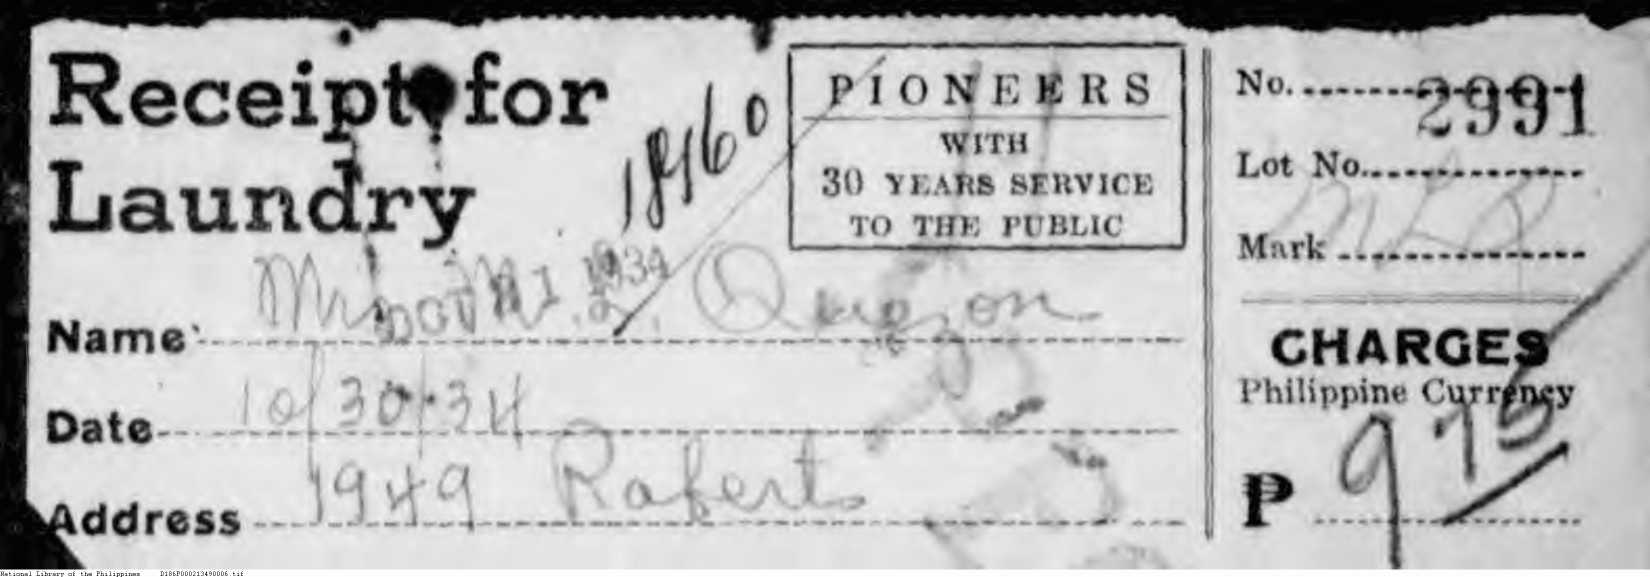 Receipt for
Laundry
18460
PIONEERS
WITH
30 YEARS SERVICE
TO THE PUBLIC
Name Mr. M. L. Quezon
OCT 31 1934
Date 10/30/34
Address 1949 Roberts
No. 2991
Lot No.
Mark MLQ
CHARGES
Philippine Currency
₱ 9 75
National Library of the Philippines D186P000213490006.tif